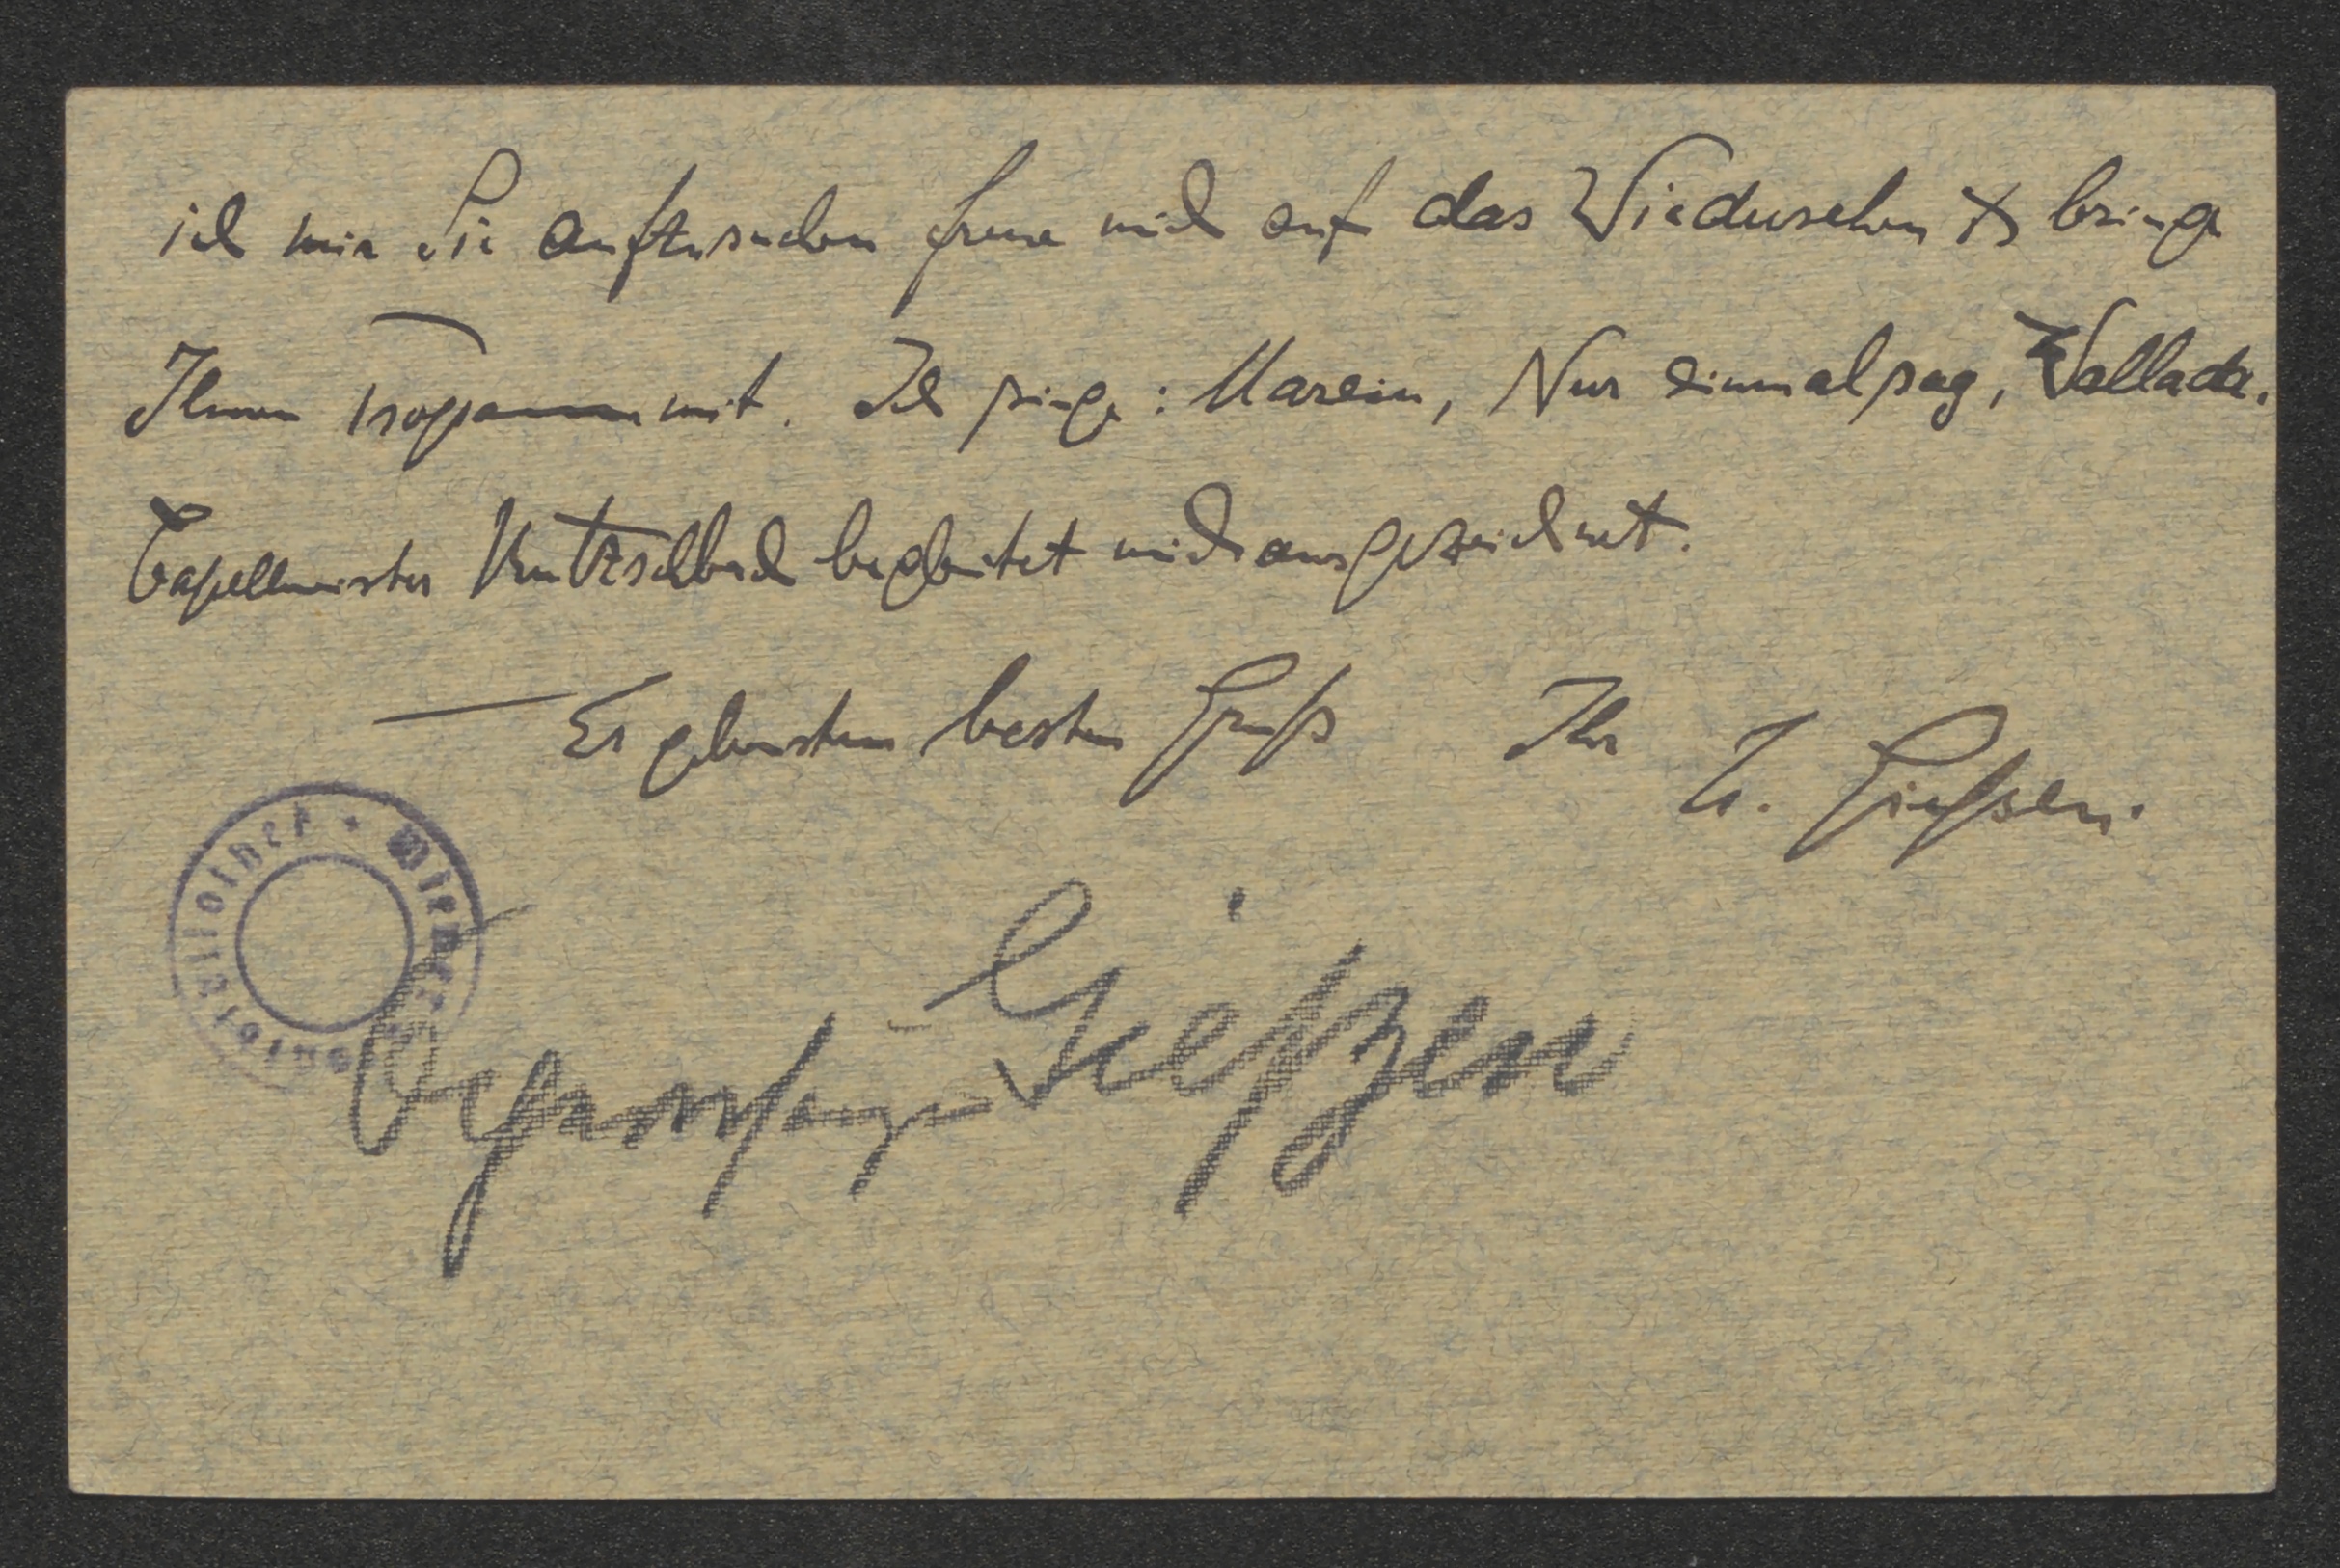 ich mir Sie aufzusuchen freue mich auf das Wiedersehen & bringe
Ihnen Programm mit. Ich singe: Marein, Nur einmal sag, Ballade.
Capellmeister Kutzschbach begleitet mich ausgezeichnet.
— Ergebensten besten Gruß Ihr H. Gießen.
Wiener Stadtbibliothek
Gießen